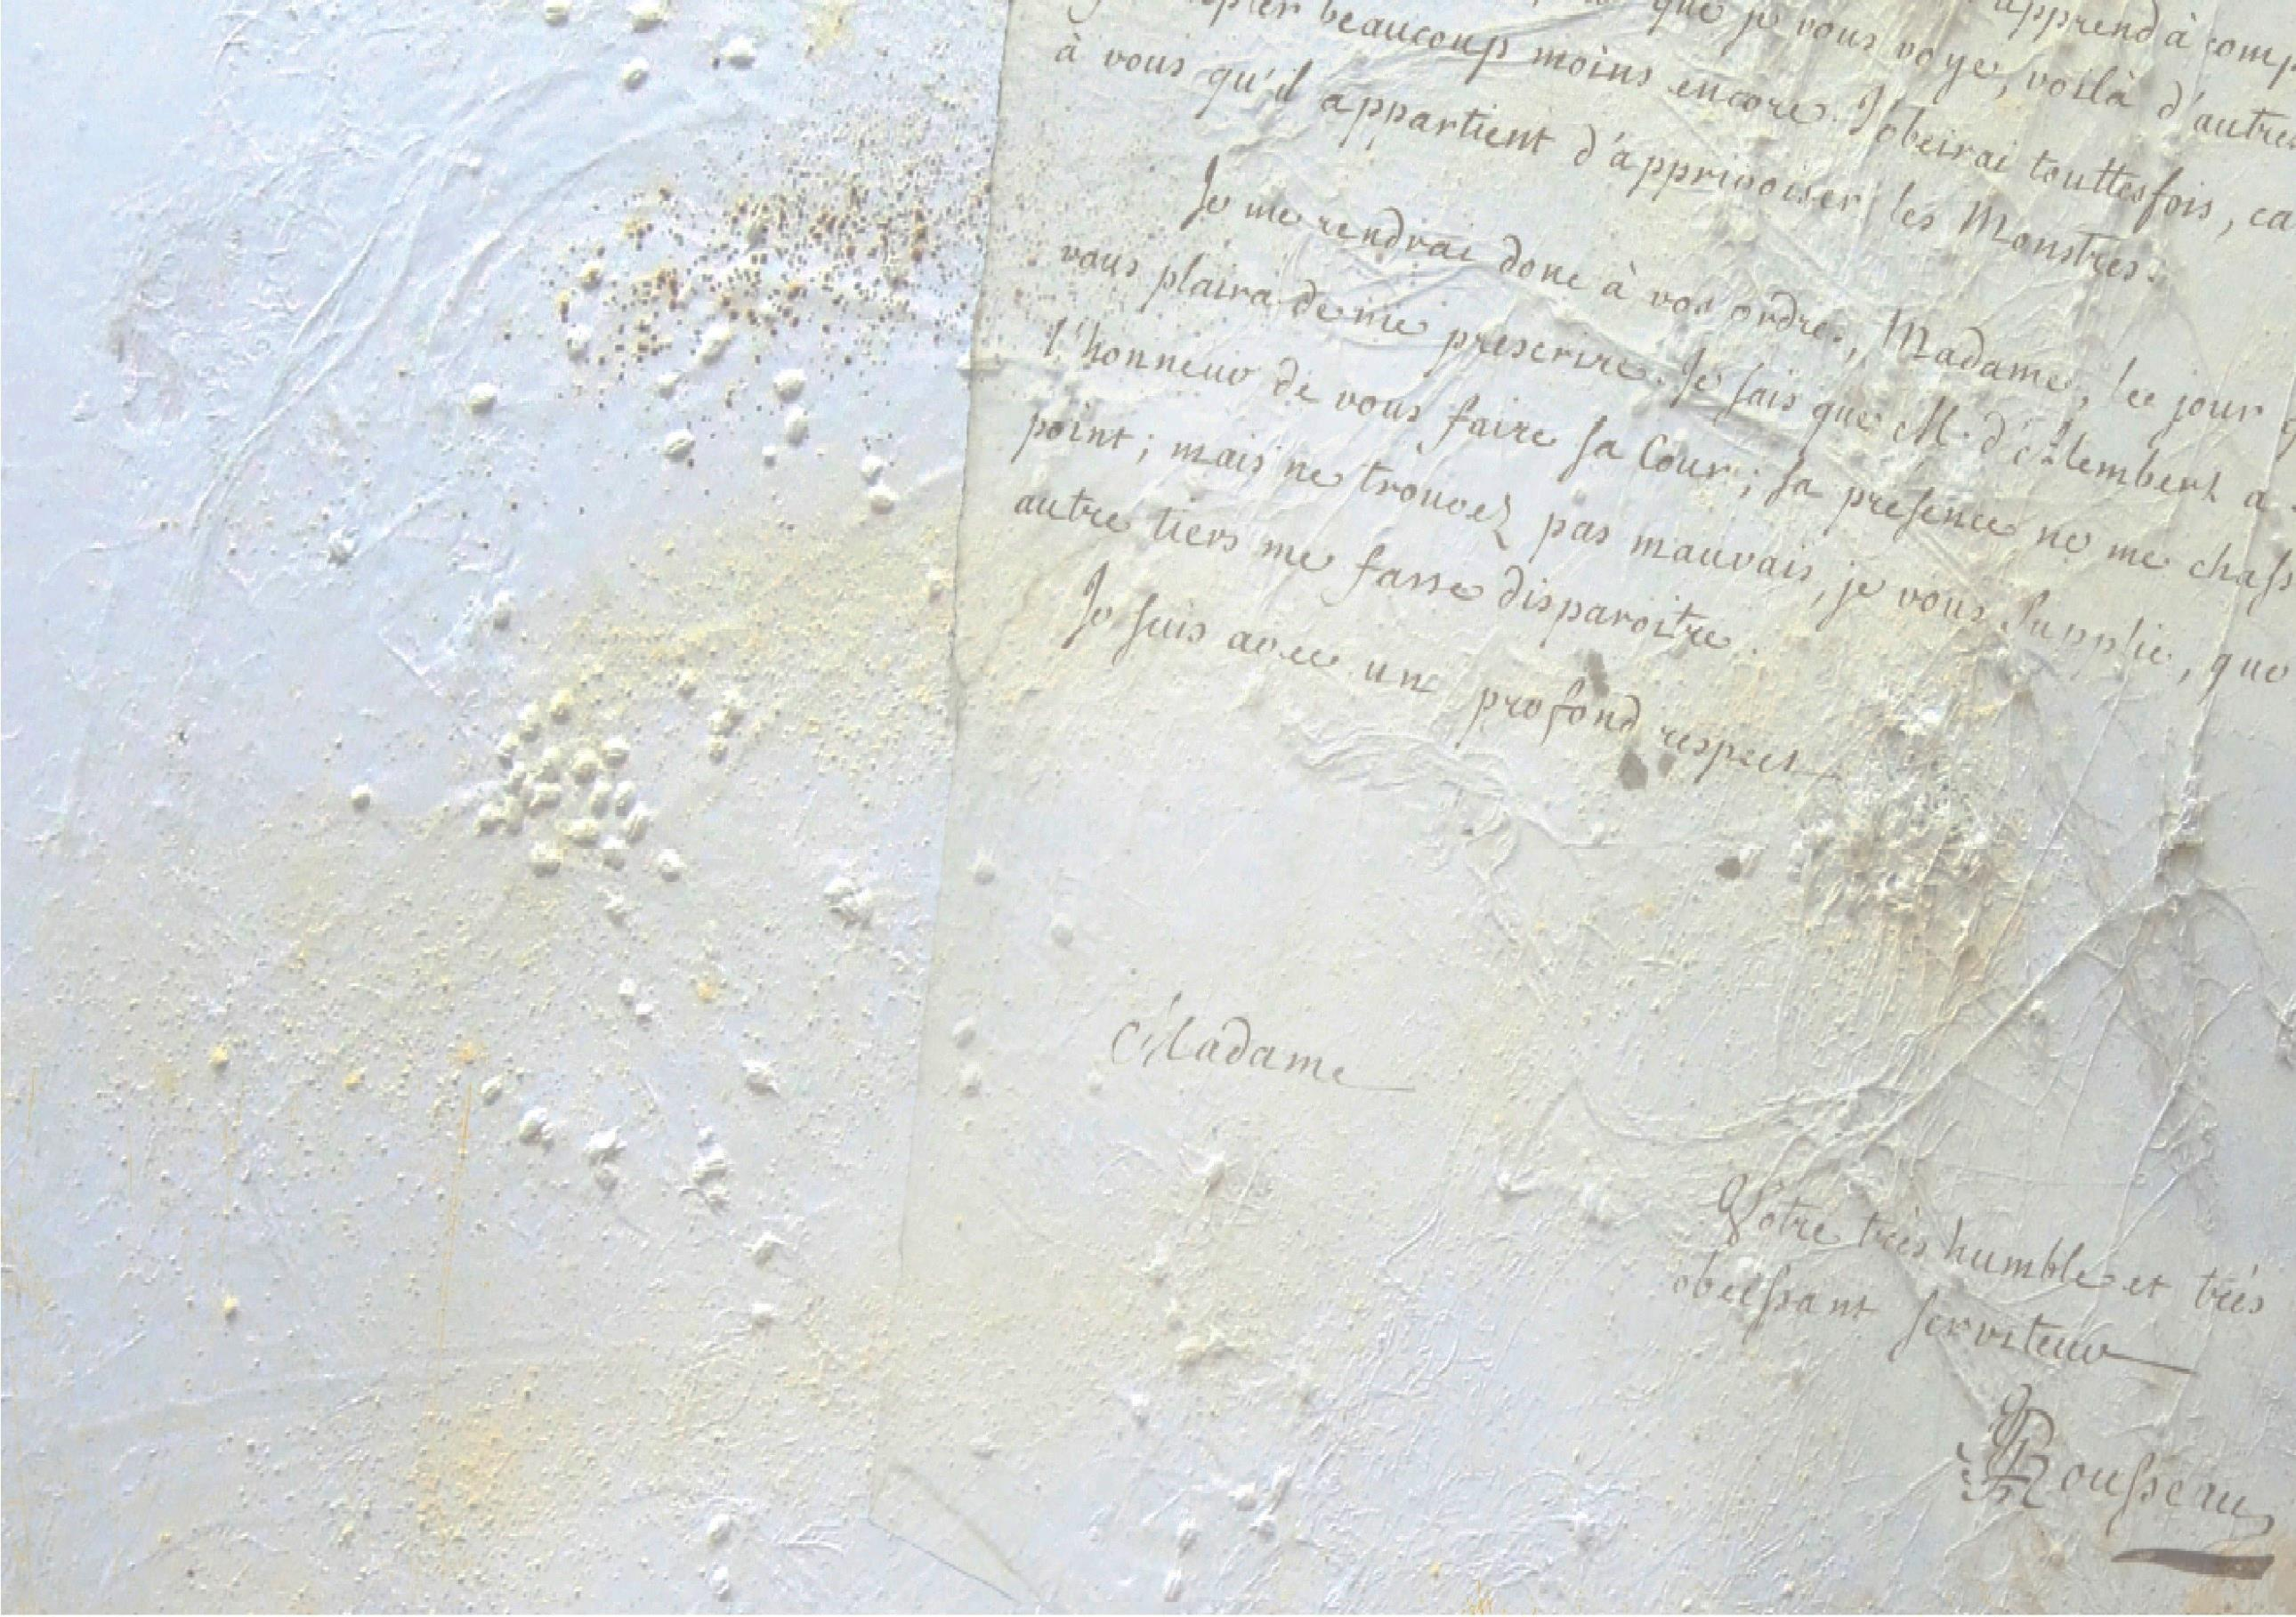 apprend à comp
que je vous voye, voilà d'autre
beaucoup moins encore. J'obeirai touttesfois, ca
à vous qu'il appartient d'apprivoiser les Monstres.
Je me rendrai donc à vos ordre, Madame, le jour
vous plaira de me prescrire. Je sais que M. d'Alembert a
l'honneur de vous faire sa Cour; sa presence ne me chass
point; mais ne trouvez pas mauvais, je vous Supplie, que
autre tiers me fasse disparoitre.
Je suis avec un profond respect
Madame
Votre très humble et très
obeissant serviteur
JJRousseau